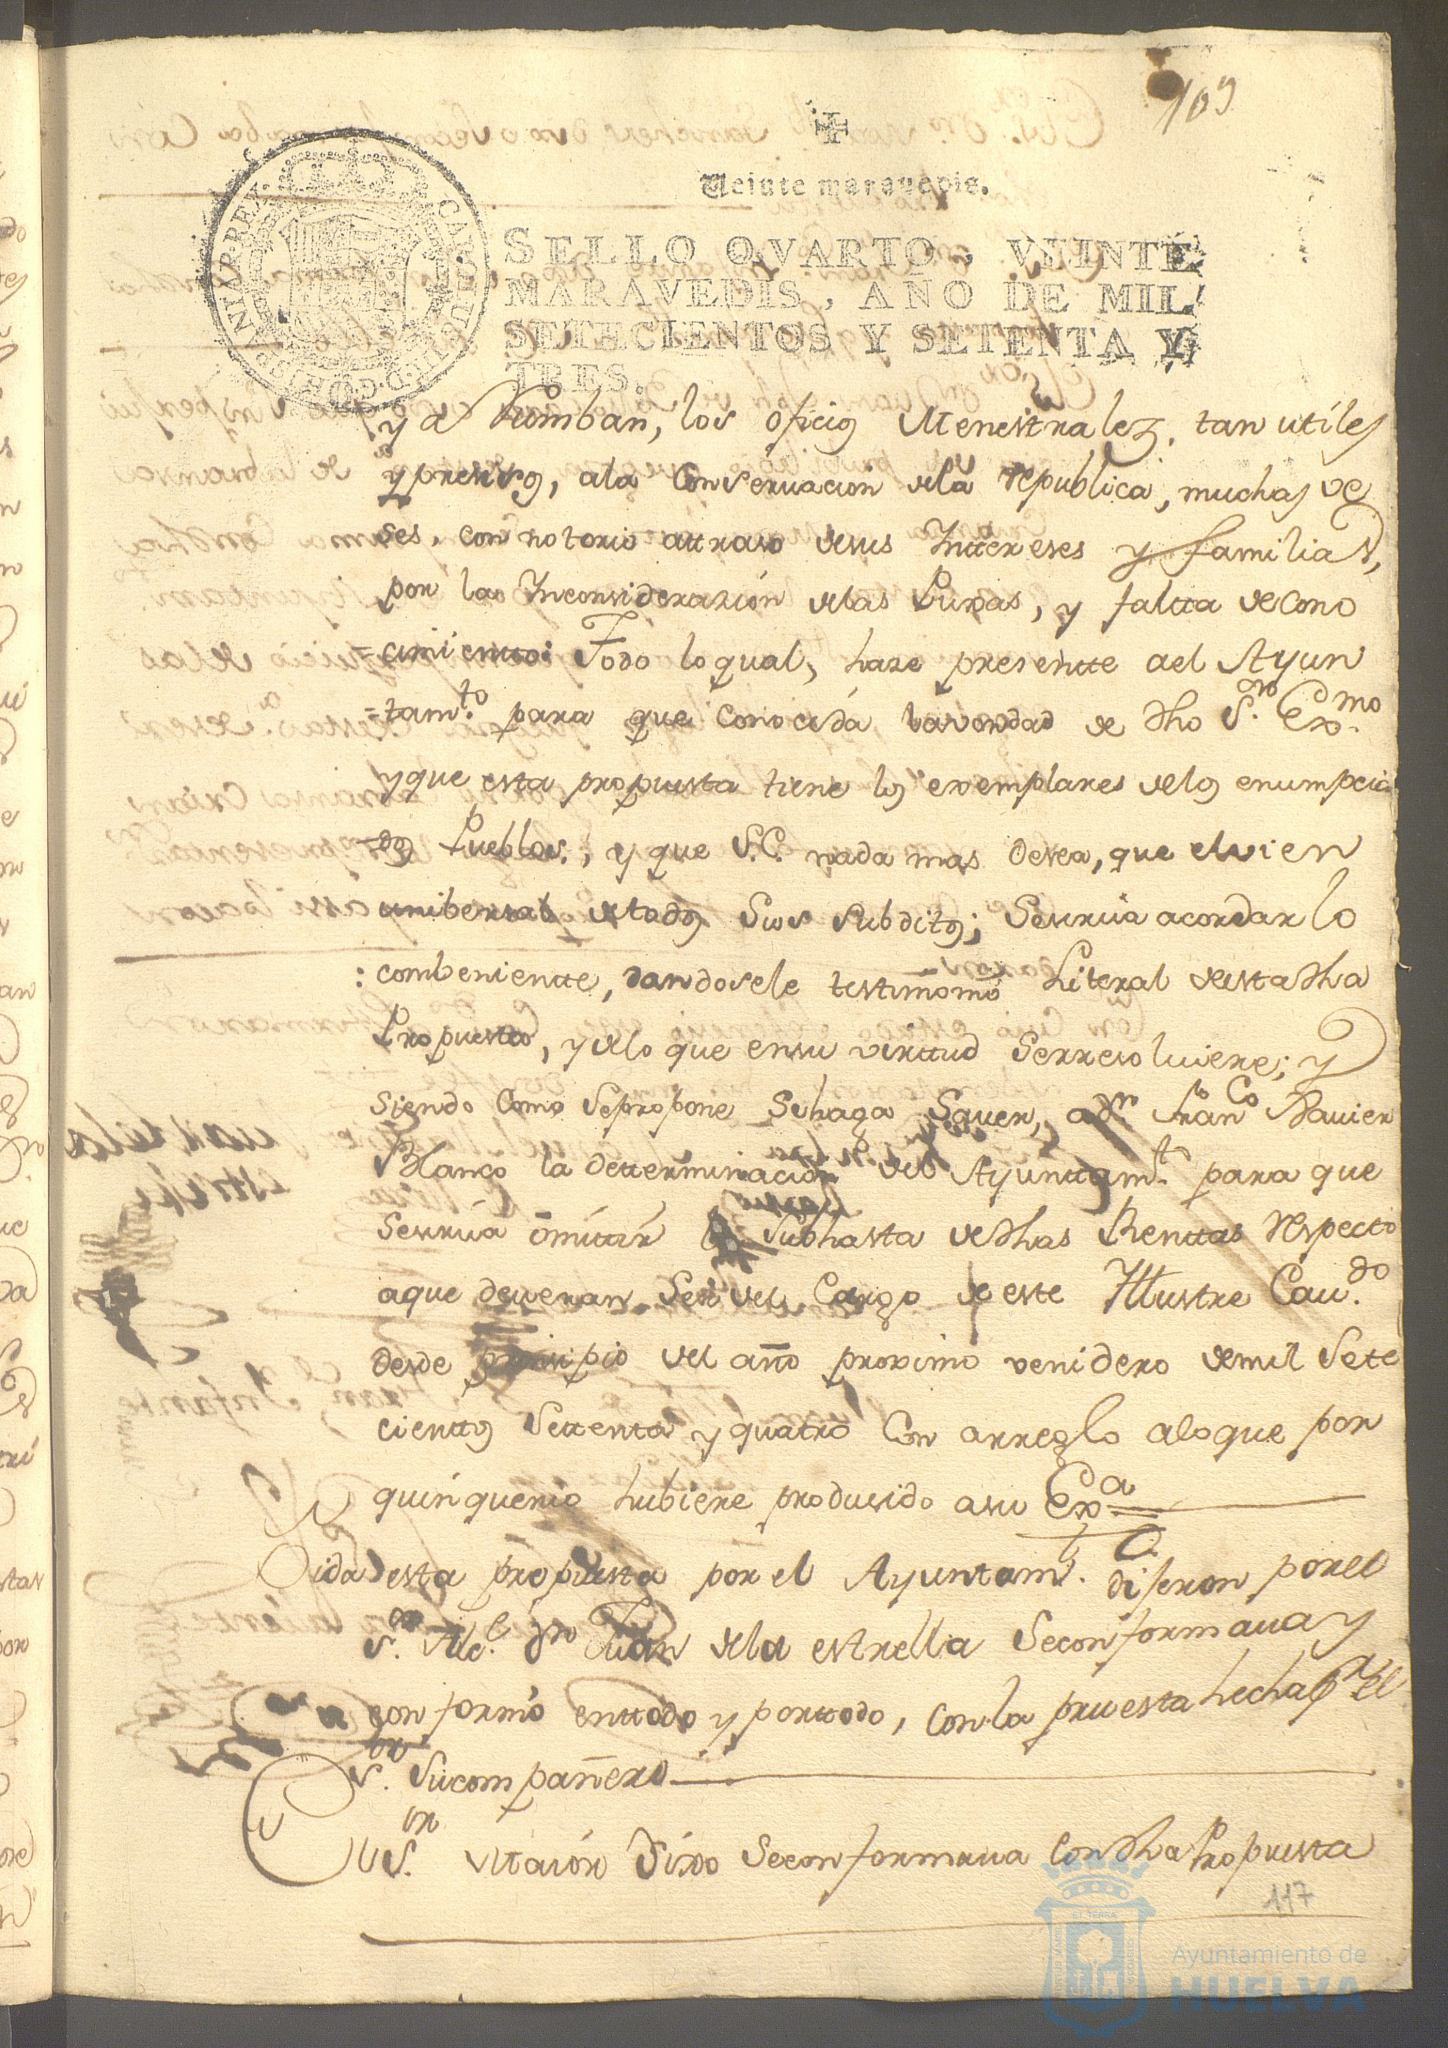 109
Veinte maravedis.
SELLO QVARTO, VEINTE
MARAVEDIS, AÑO DE MIL
SETECIENTOS Y SETENTA Y
TRES.
CAROLUS III D G HISPANIAR REX
y los oficios Menestrales, tan utiles
y presisos, ala Conservacion dela republica, muchas ve
ses, con notorio attraso desus Inttereses y familias,
por las Inconsiderazion delas Puxas, y faltta decono
cimientto: Todo loqual, haze presentte ael Ayun
=tamto. para que conocida lavondad de dho Sor. Exmo.
yque esta propuesta tiene los exemplares delos enumpcia
dos Pueblos, y que S.E. nada mas desea, que elvien
unibersal detodos Sus Subditos; Sesirva acordar lo
combenientte, dandosele testimonio Literal deesta dha
Propuesta, y delo que ensu virttud Serresolviere; y
Siendo Como Sepropone Sehaga Saver, adn. Franco Xavier
Blanco la detterminacion del Ayunttamto. para que
Sesirva omittir la Subhasta dedhas Renttas respecto
aque deveran Ser del Cargo de este Illustre Cavdo.
desde prinsipio del año proximo venidero demil Sete
cienttos Settenta y quatro Con arreglo aloque por
quinquenio hubiere produsido asu Exa.
Oida esta propuesta por el Ayuntamto. dijeron porel
Sor. Alce. dn Juan dela estrella Seconformava y
conformó enttodo y porttodo, con la pruesta hecha pr. el
Sor. Sucompañero
El Sor. Vitorio Dixo Seconformava Con dha Propuesta
117
Ayuntamiento de
HUELVA